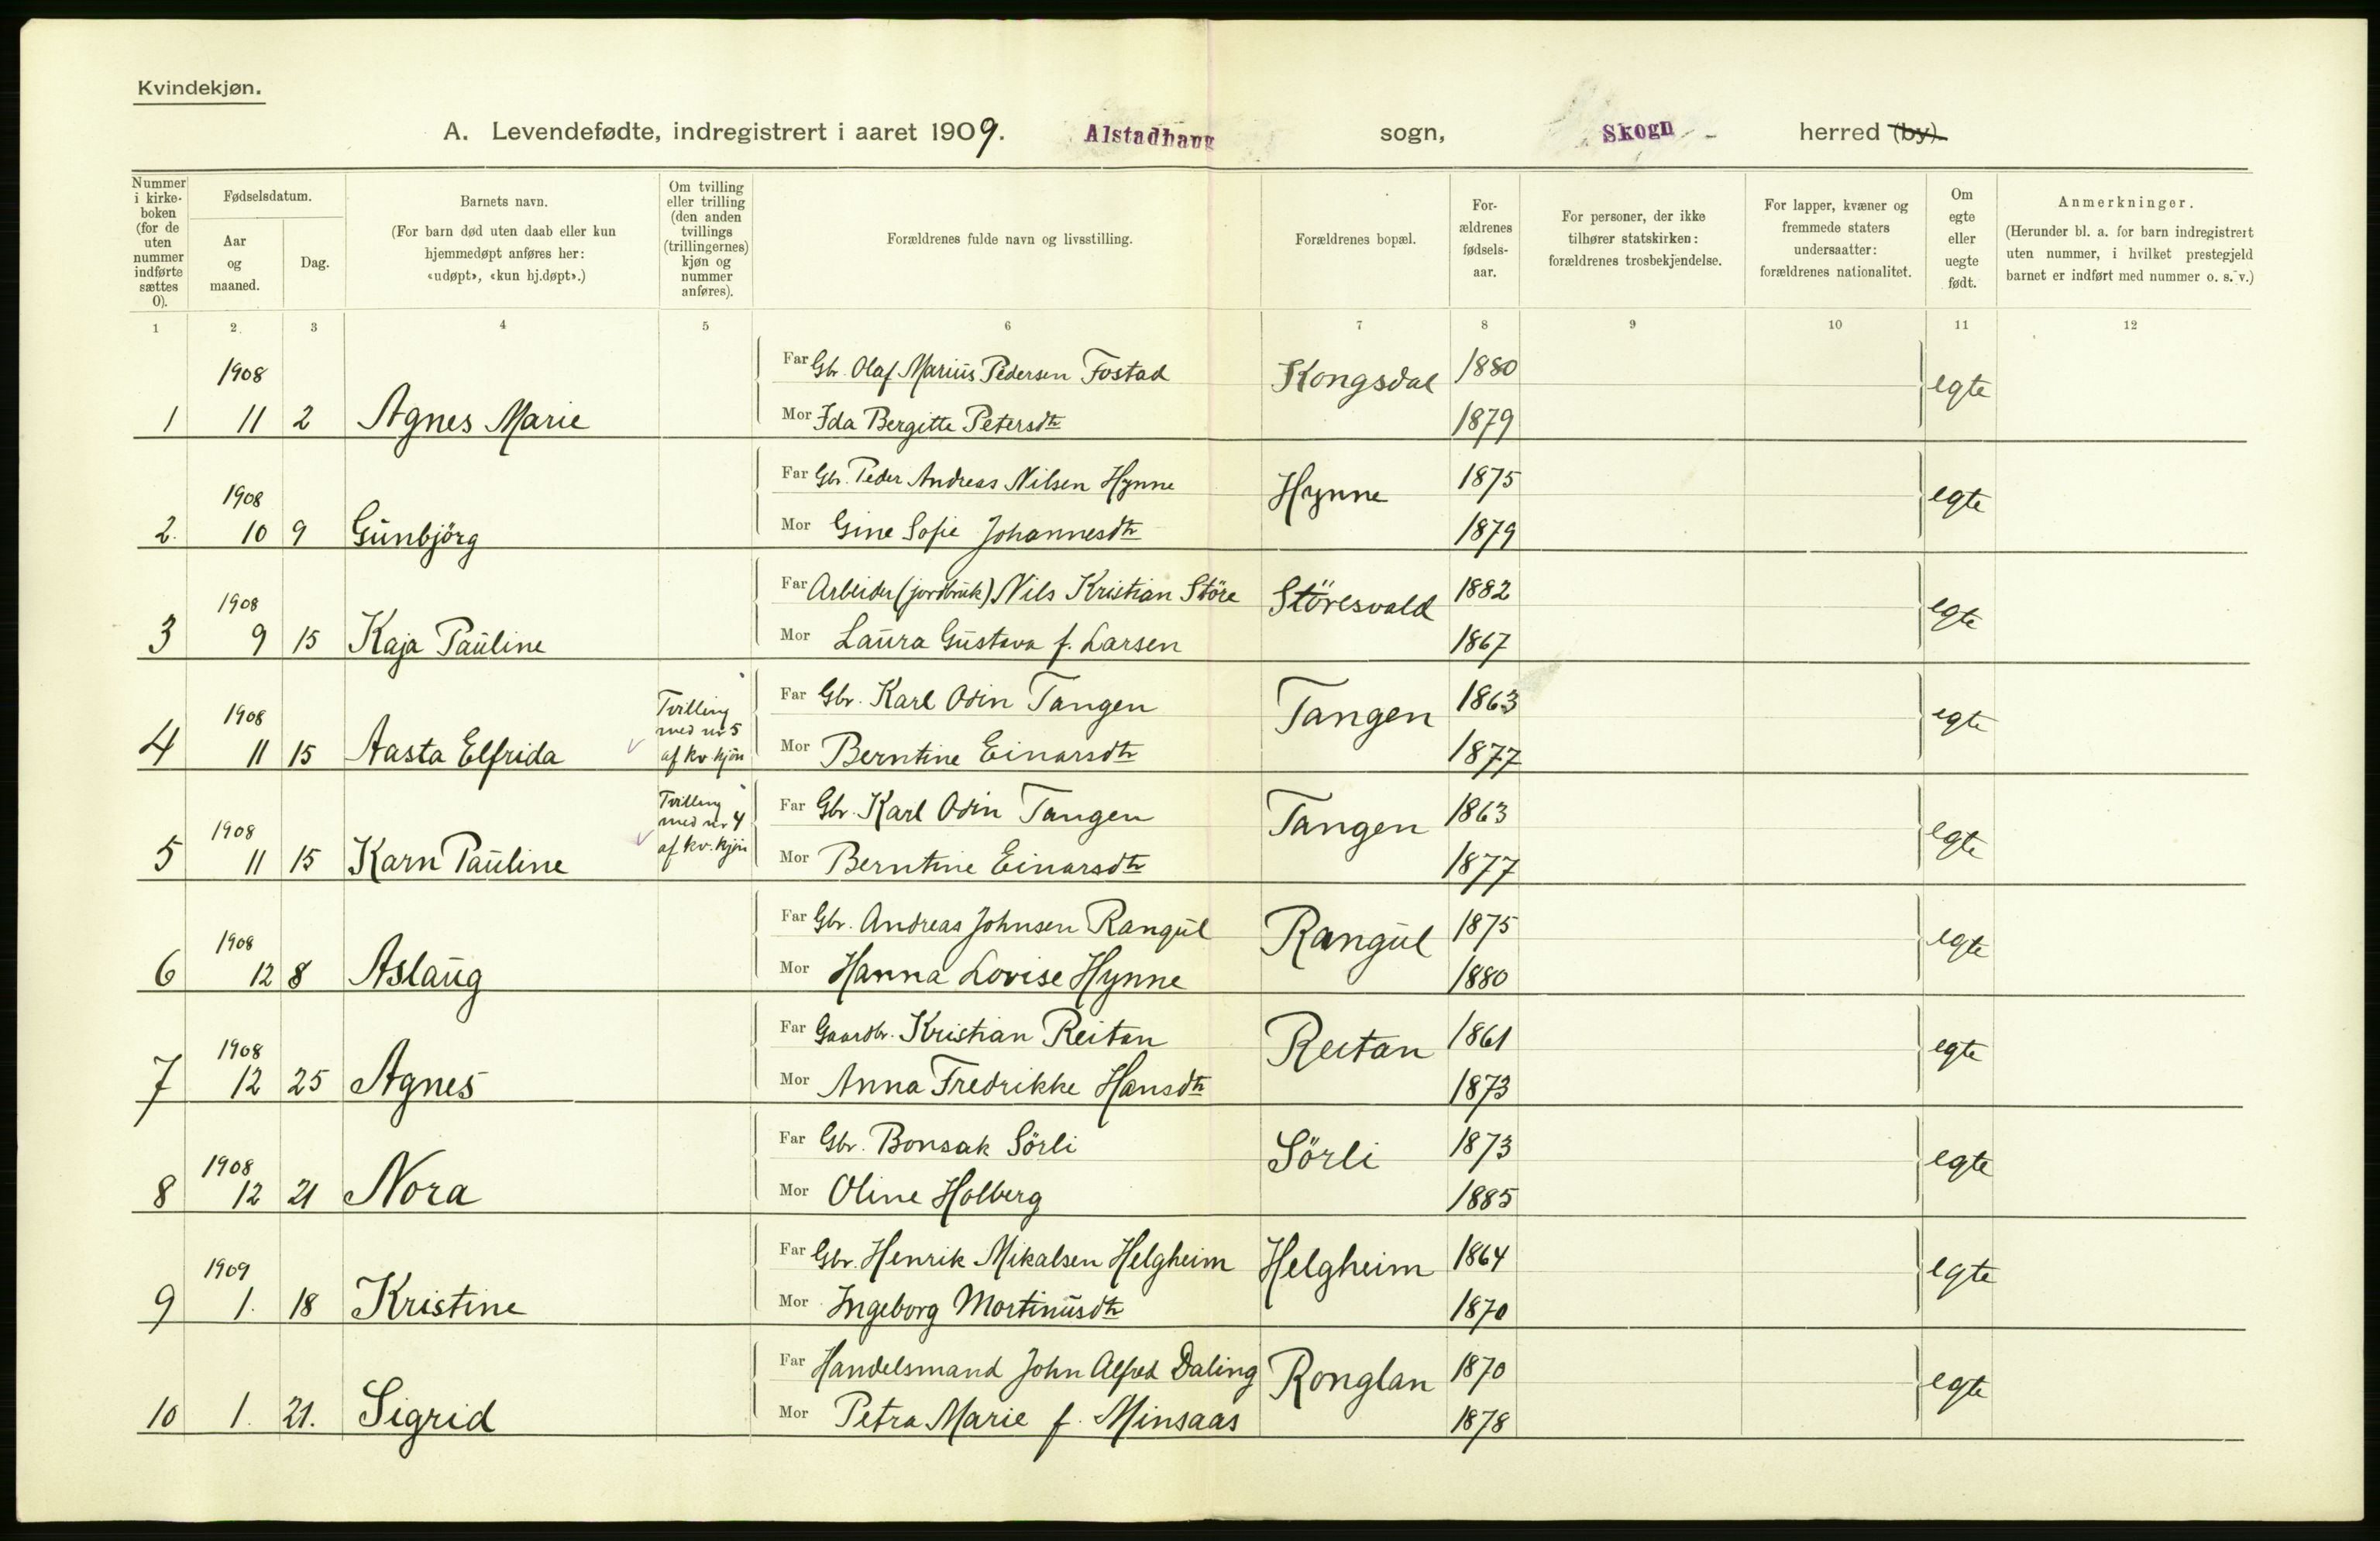 Kvindekjøn.
A. Levendefødte, indregistrert i aaret 1909. Alstadhaug sogn, Skogn herred (by).
Nummer i kirke-boken (for de uten nummer indførte sættes 0).
Fødselsdatum.
Aar og maaned.
Dag.
Barnets navn.
(For barn død uten daab eller kun hjemmedøpt anføres her: «udøpt», «kun hj.døpt».)
Om tvilling eller trilling (den anden tvillings (trillingernes) kjøn og nummer anføres).
Forældrenes fulde navn og livsstilling.
Forældrenes bopæl.
For-ældrenes fødsels-aar.
For personer, der ikke tilhører statskirken: forældrenes trosbekjendelse.
For lapper, kvæner og fremmede staters undersaatter: forældrenes nationalitet.
Om egte eller uegte født.
Anmerkninger.
(Herunder bl. a. for barn indregistrert uten nummer, i hvilket prestegjeld barnet er indført med nummer o. s. v.)
1 2. 3 4 5 6 7 8 9 10 11 12
1908 Far Gbr. Olaf Marius Pedersen Fostad Kongsdal 1880 egte
1 11 2 Agnes Marie Mor Ida Bergitte Petersdtr 1879
1908 Far Gbr. Peder Andreas Nilsen Hynne Hynne 1875 egte
2. 10 9 Gunbjörg Mor Gine Sofie Johannesdtr 1879
1908 Far Arbeider (jordbruk) Nils Kristian Störe Störesvald 1882 egte
3 9 15 Kaja Pauline Mor Laura Gustava f. Larsen 1867
1908 Tvilling med nr 5 af kv. kjön Far Gbr. Karl Odin Tangen Tangen 1863 egte
4 11 15 Aasta Elfrida Mor Berntine Einarsdtr 1877
1908 Tvilling med nr 4 af kv. kjön Far Gbr. Karl Odin Tangen Tangen 1863 egte
5 11 15 Karn Pauline Mor Berntine Einarsdtr 1877
1908 Far Gbr. Andreas Johnsen Rangul Rangul 1875 egte
6 12 8 Aslaug Mor Hanna Lovise Hynne 1880
1908 Far Gaardbr. Kristian Reitan Reitan 1861 egte
7 12 25 Agnes Mor Anna Fredrikke Hansdtr 1873
1908 Far Gbr. Bonsak Sörli Sörli 1873 egte
8 12 21 Nora Mor Oline Holberg 1885
1909 Far Gbr. Henrik Mikalsen Helgheim Helgheim 1864 egte
9 1. 18 Kristine Mor Ingeborg Martinusdtr 1870
Far Handelsmand John Alfred Daling Ronglan 1870 egte
10 1. 21. Sigrid Mor Petra Marie f. Minsaas 1878